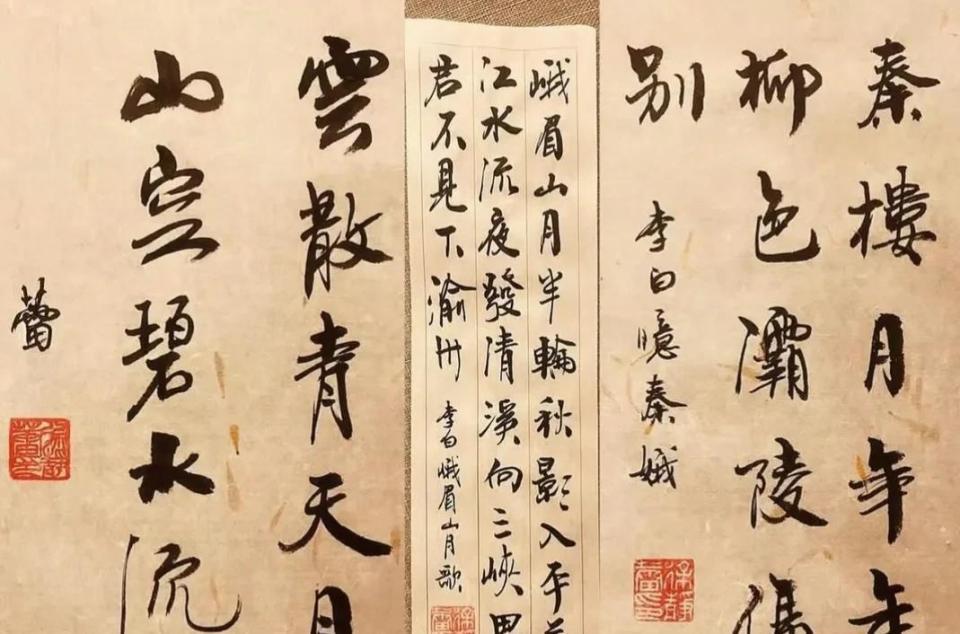 秦樓月年年
柳色灞陵傷
别
李白憶秦娥
峨眉山月半輪秋影入平羌
江水流夜發清溪向三峽思
君不見下渝州
李白峨眉山月歌
雲散青天月
山空碧水
蕾